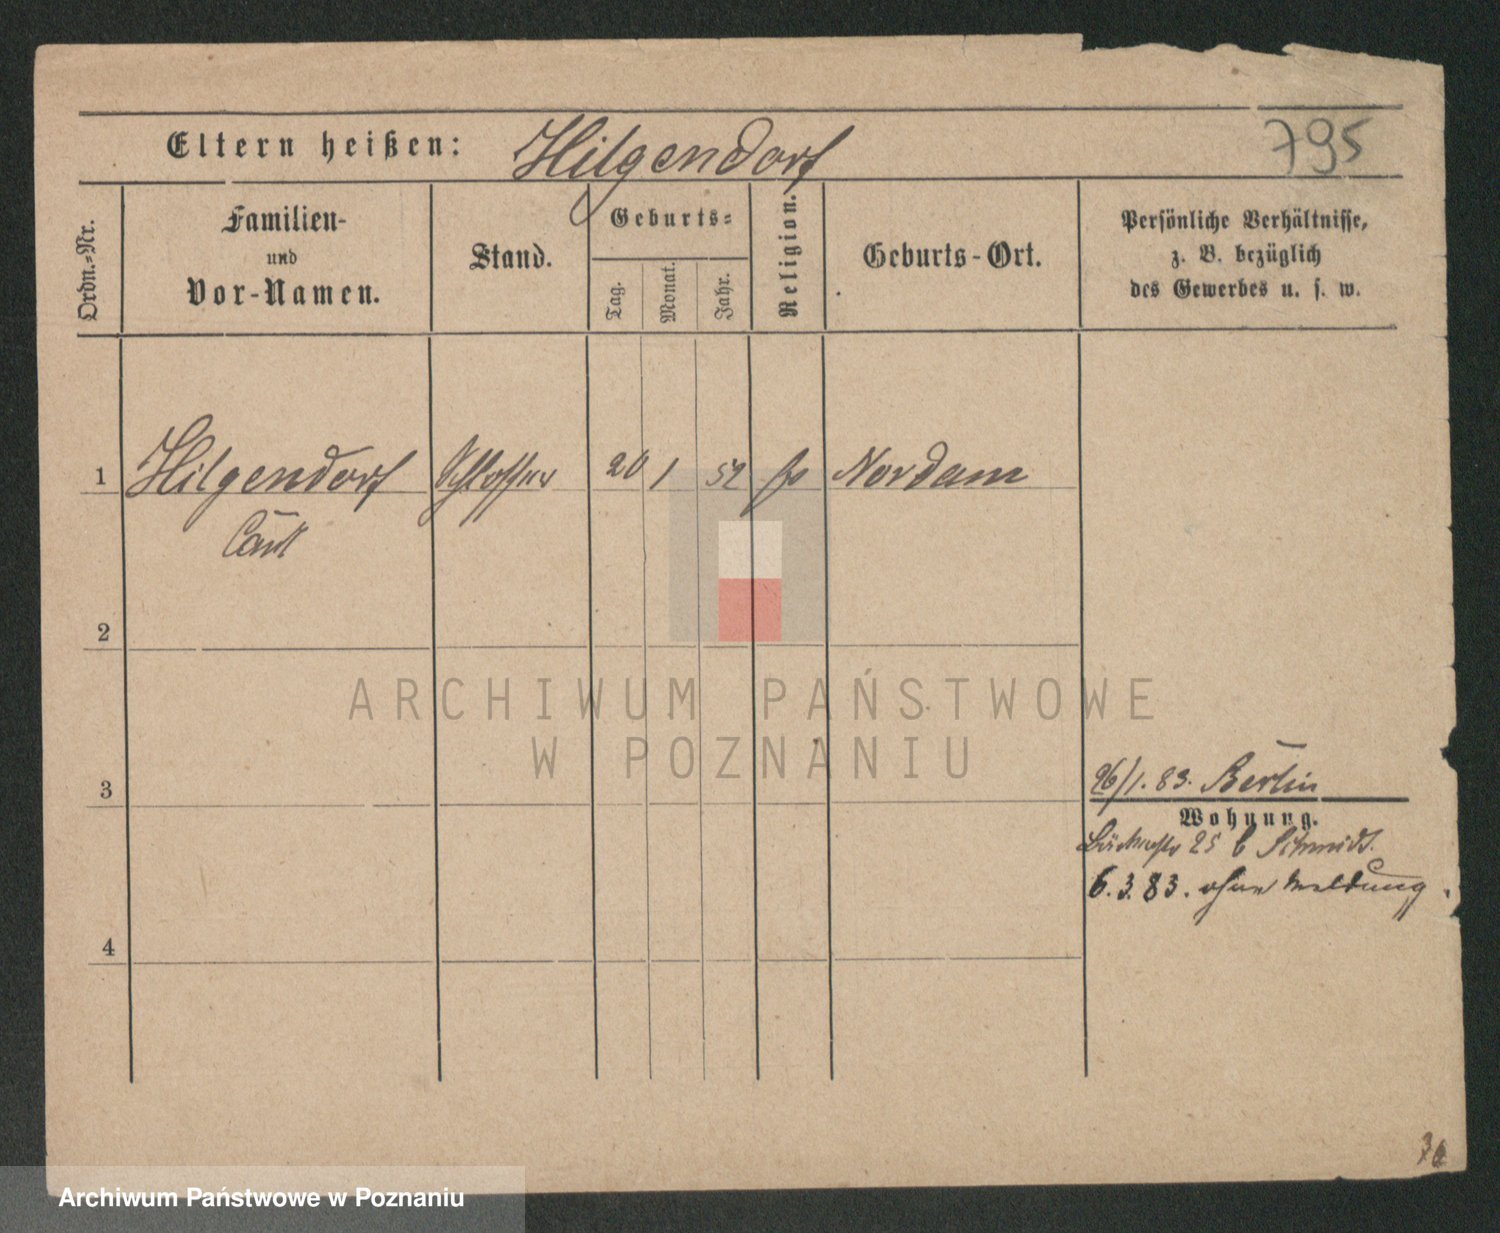 Eltern heißen: Hilgendorf 795
Ordn.-Nr.
Familien-
und
Vor-Namen.
Stand.
Geburts-
Tag.
Monat.
Jahr.
Religion.
Geburts-Ort.
Persönliche Verhältnisse,
z. B. bezüglich
des Gewerbes u. s. w.
1 Hilgendorf Schlosser 20 1 52 Nordam
Carl
2
ARCHIWUM PAŃSTWOWE
W POZNANIU
3
26/1. 83. Berlin
Wohnung.
25 b Schmidt.
6.3.83. ohne Meldung
4
Archiwum Państwowe w Poznaniu